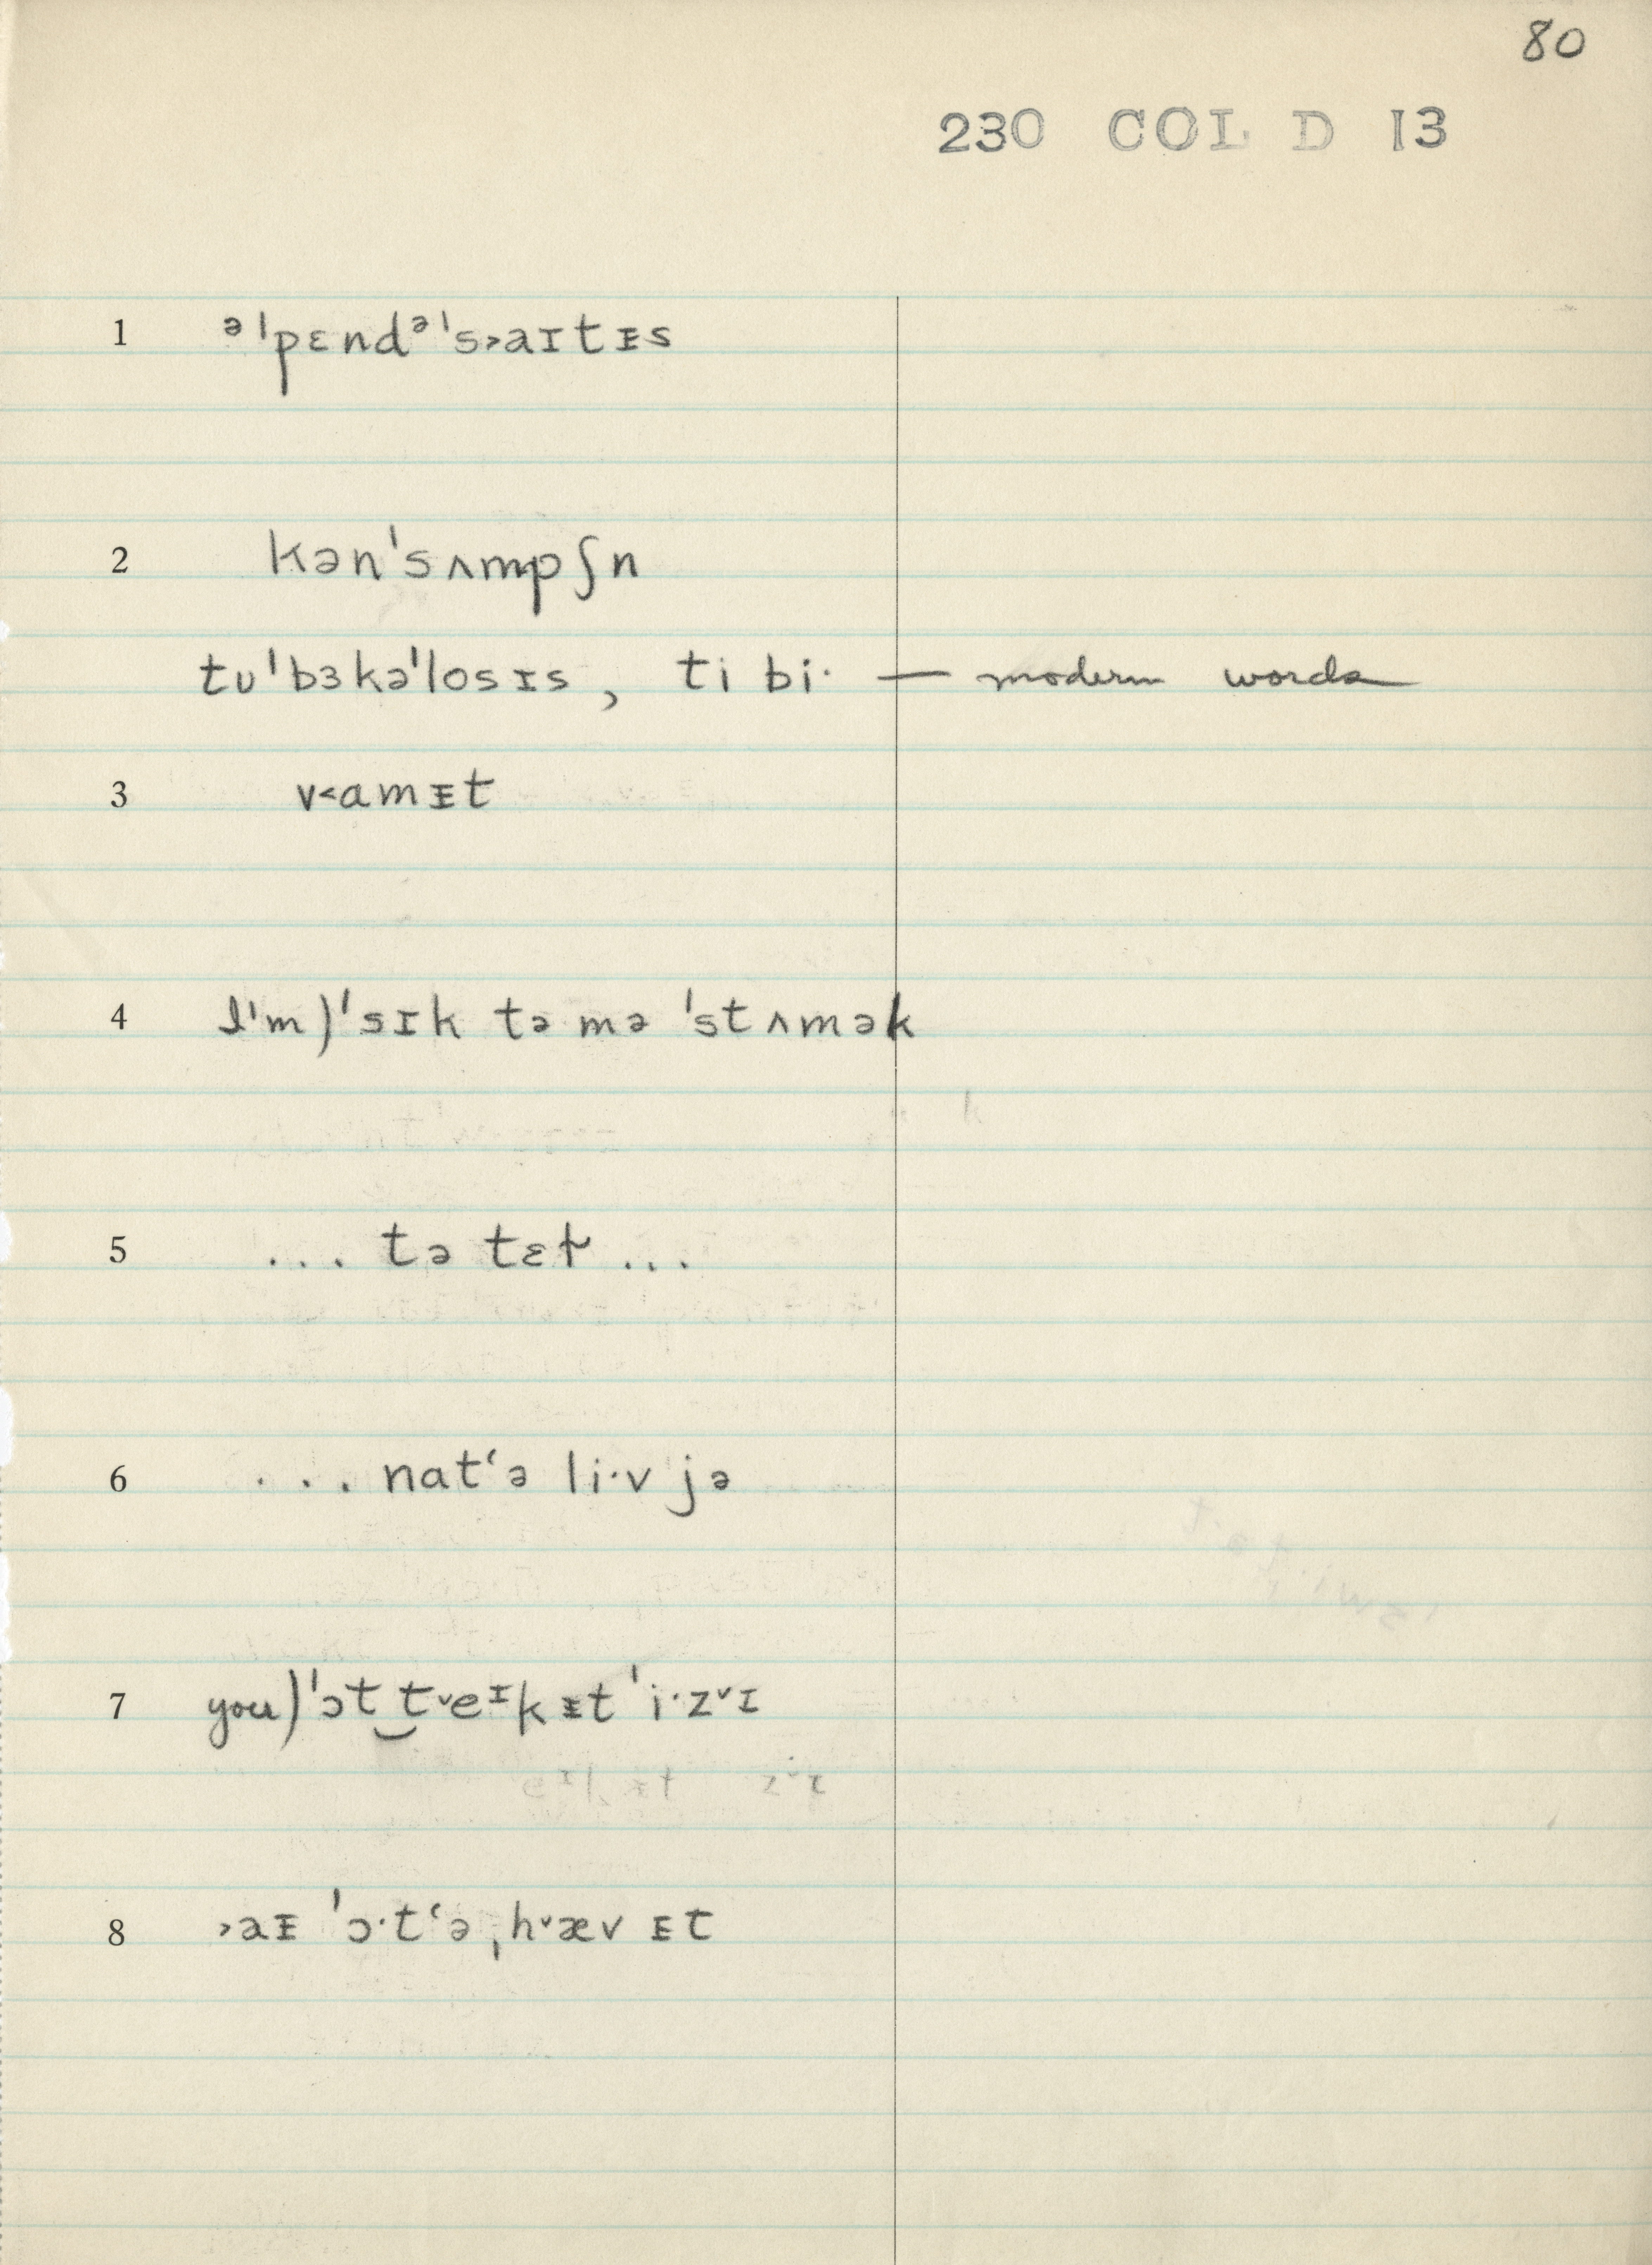 80
230 COL D 13
1 ᵊˈpɛndᵊˈs˃aɪtᵻs
2 kənˈsʌmpʃn
tʊˈbɜkəˈlosɪs, ti bi· — modern words
3 v˂amᵻt
4 I'm)ˈsɪk tə mə ˈstʌmək
5 ... tə tɛt̬ ...
6 ... nat‘ə li·v jə
7 you)ˈɔt‿t˅eᶦkᵻt ˈi·z˅ɪ
8 ˃aᵻ ˈɔ·t‘ə ˌh˅æv ᵻt